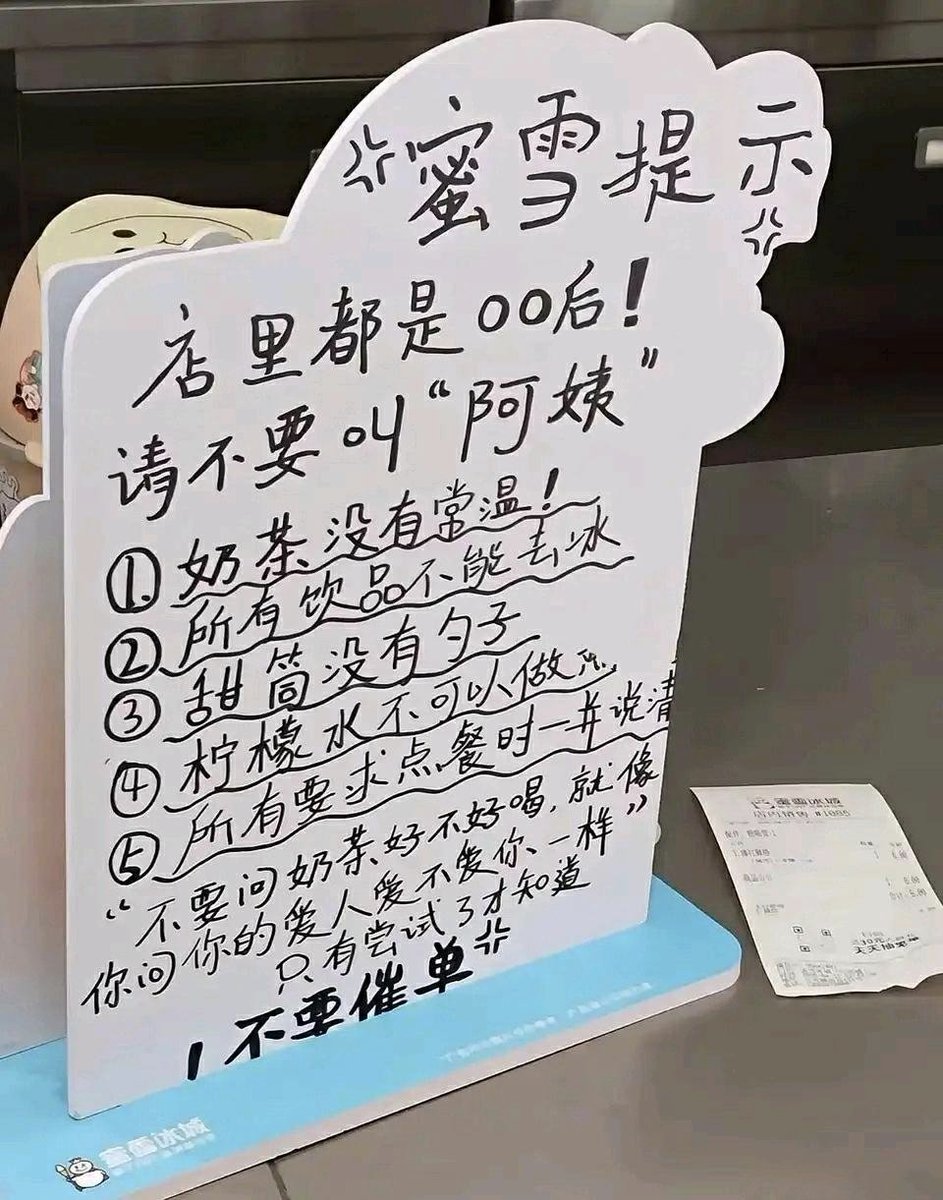 蜜雪提示
店里都是00后!
请不要叫“阿姨”
①奶茶没有常温!
②所有饮品不能去冰
③甜筒没有勺子
④柠檬水不可以做热
⑤所有要求点餐时一并说清
“不要问奶茶好不好喝,就像
你问你的爱人爱不爱你一样”
只有尝试了才知道
!不要催单
蜜雪冰城
蜜雪冰城
店内销售 #1085
天天抽免单